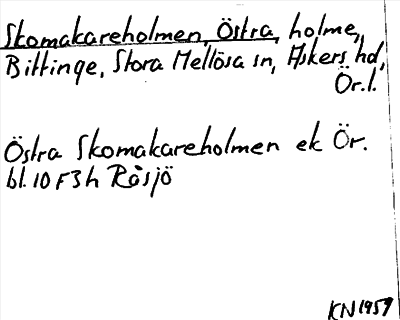 Skomakareholmen, Östra, holme,
Bittinge, Stora Mellösa sn, Askers hd,
Ör.l.
Östra Skomakareholmen ek Ör.
bl. 10 F3h Råsjö
KN 1957